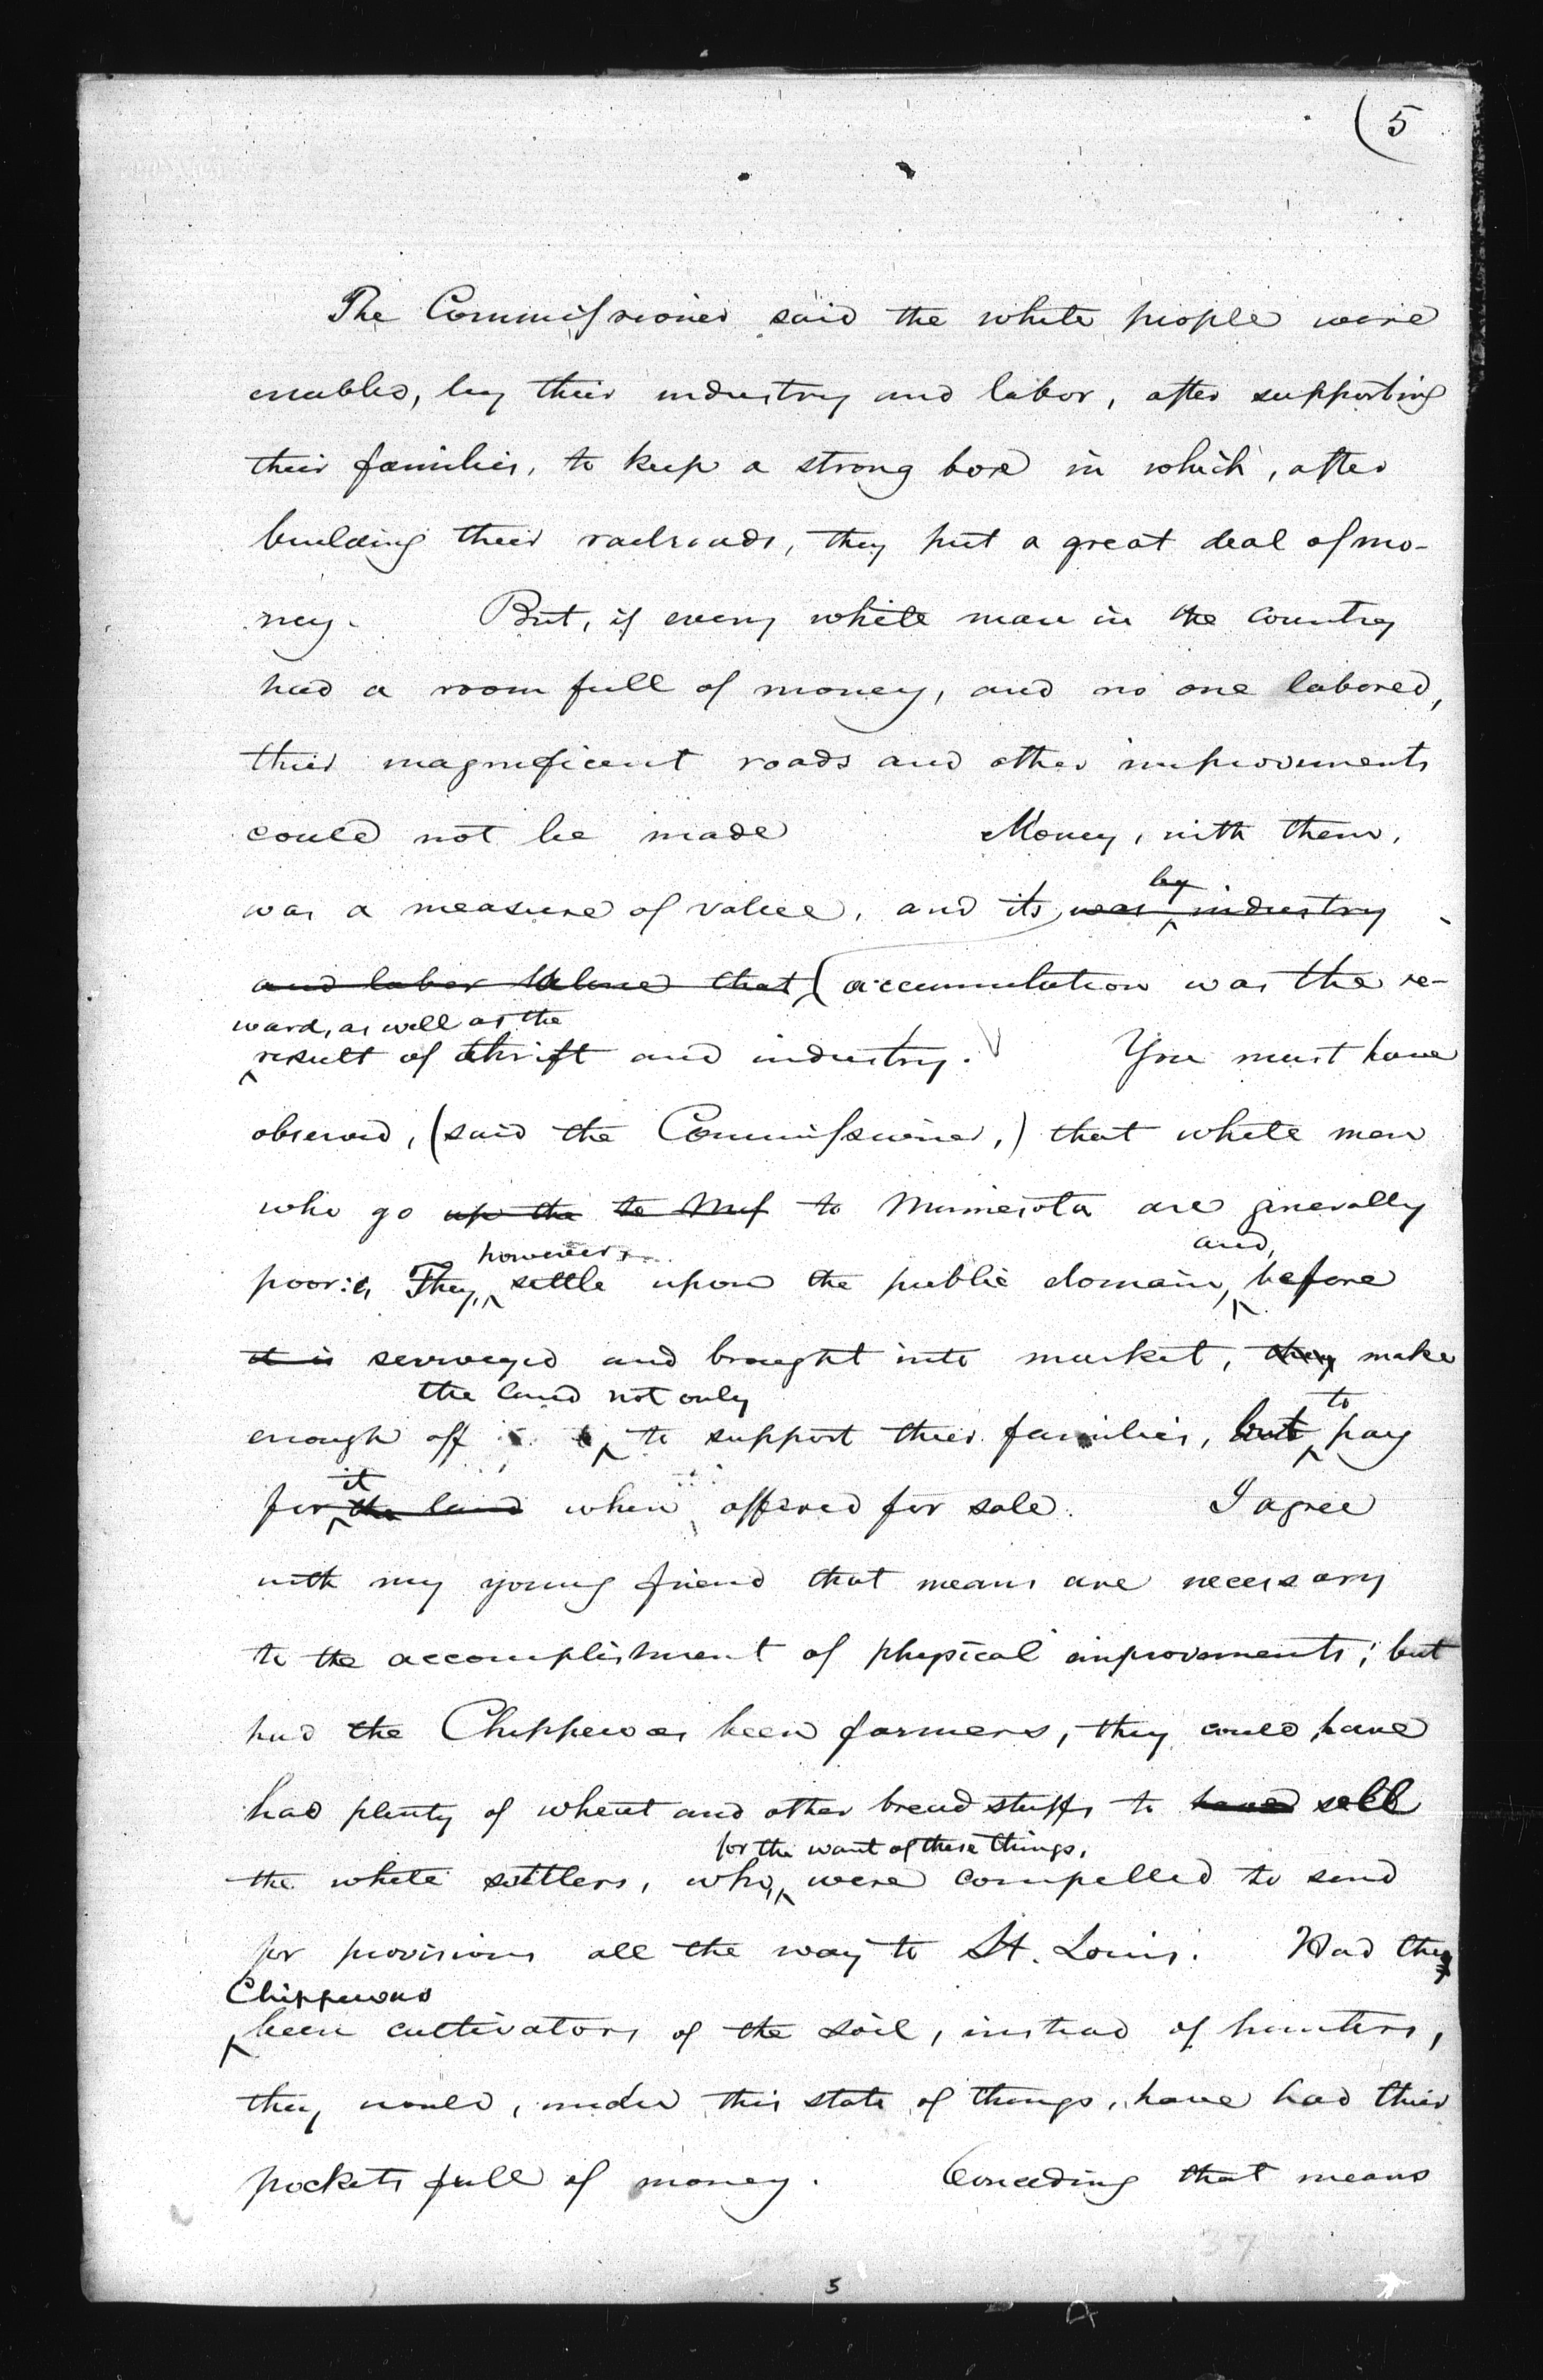 (5
The Commissioner said the white people were
enabled, by their industry and labor, after supporting
their families, to keep a strong box in which, after
building their railroads, they put a great deal of mo-
ney. But, if every white man in the country
had a room full of money, and no one labored,
their magnificent roads and other improvements
could not be made Money, with them,
by
was a measure of value, and its was industry
and labor alone that accumulation was the re-
ward, as well as the
result of thrift and industry. You must have
observed, (said the Commissioner,) that white men
who go up the to to Minnesota are generally
however, and,
poor: They, settle upon the public domain, before
it is surveyed and brought into market, they make
the land not only to
enough off to support their families, but pay
it
for the land when offered for sale. I agree
with my young friend that means are necessary
to the accomplishment of physical improvements; but
had the Chippewas been farmers, they could have
had plenty of wheat and other bread stuffs to sell
for the want of these things,
the white settlers, who, were compelled to send
for provisions all the way to St. Louis. Had they
Chippewas
been cultivators of the soil, instead of hunters,
they would, under this state of things, have had their
pockets full of money. Conceding that means
37
5